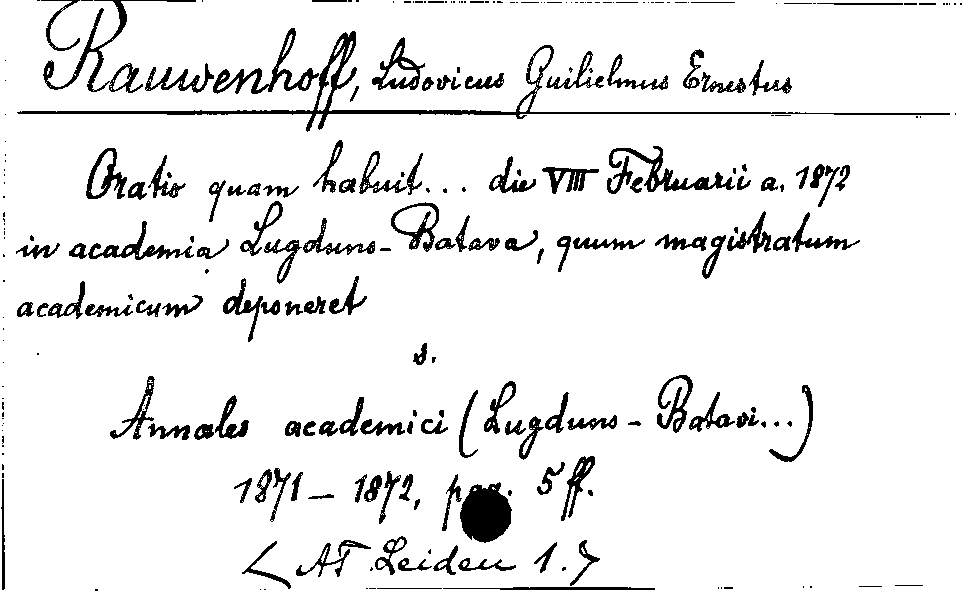 Rauwenhoff, Ludovicus Guilielmus Ernestus
Oratio quam habuit... die VIII Februarii a. 1872
in academia Lugduno-Batava, quum magistratum
academicum deponeret
s.
Annales academici (Lugduno-Batavi...)
1871-1872, pag. 5 ff.
< AT Leiden 1.>